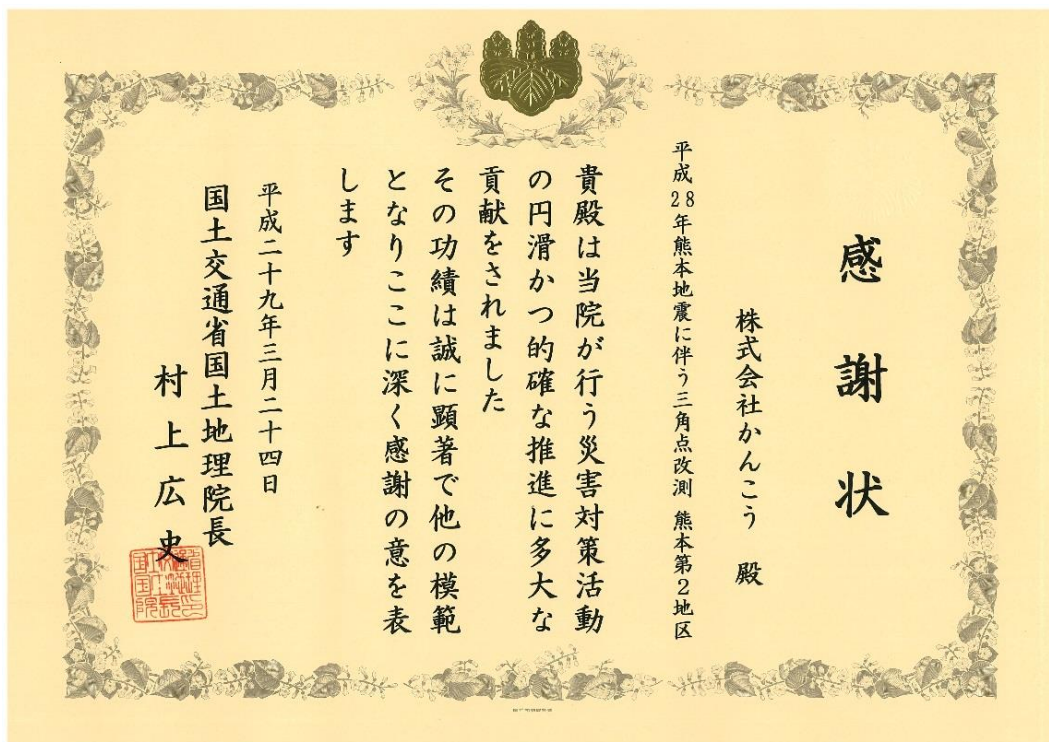 感謝状
株式会社かんこう 殿
平成28年熊本地震に伴う三角点改測 熊本第2地区
貴殿は当院が行う災害対策活動
の円滑かつ的確な推進に多大な
貢献をされました
その功績は誠に顕著で他の模範
となりここに深く感謝の意を表
します
平成二十九年三月二十四日
国土交通省国土地理院長
村上広史